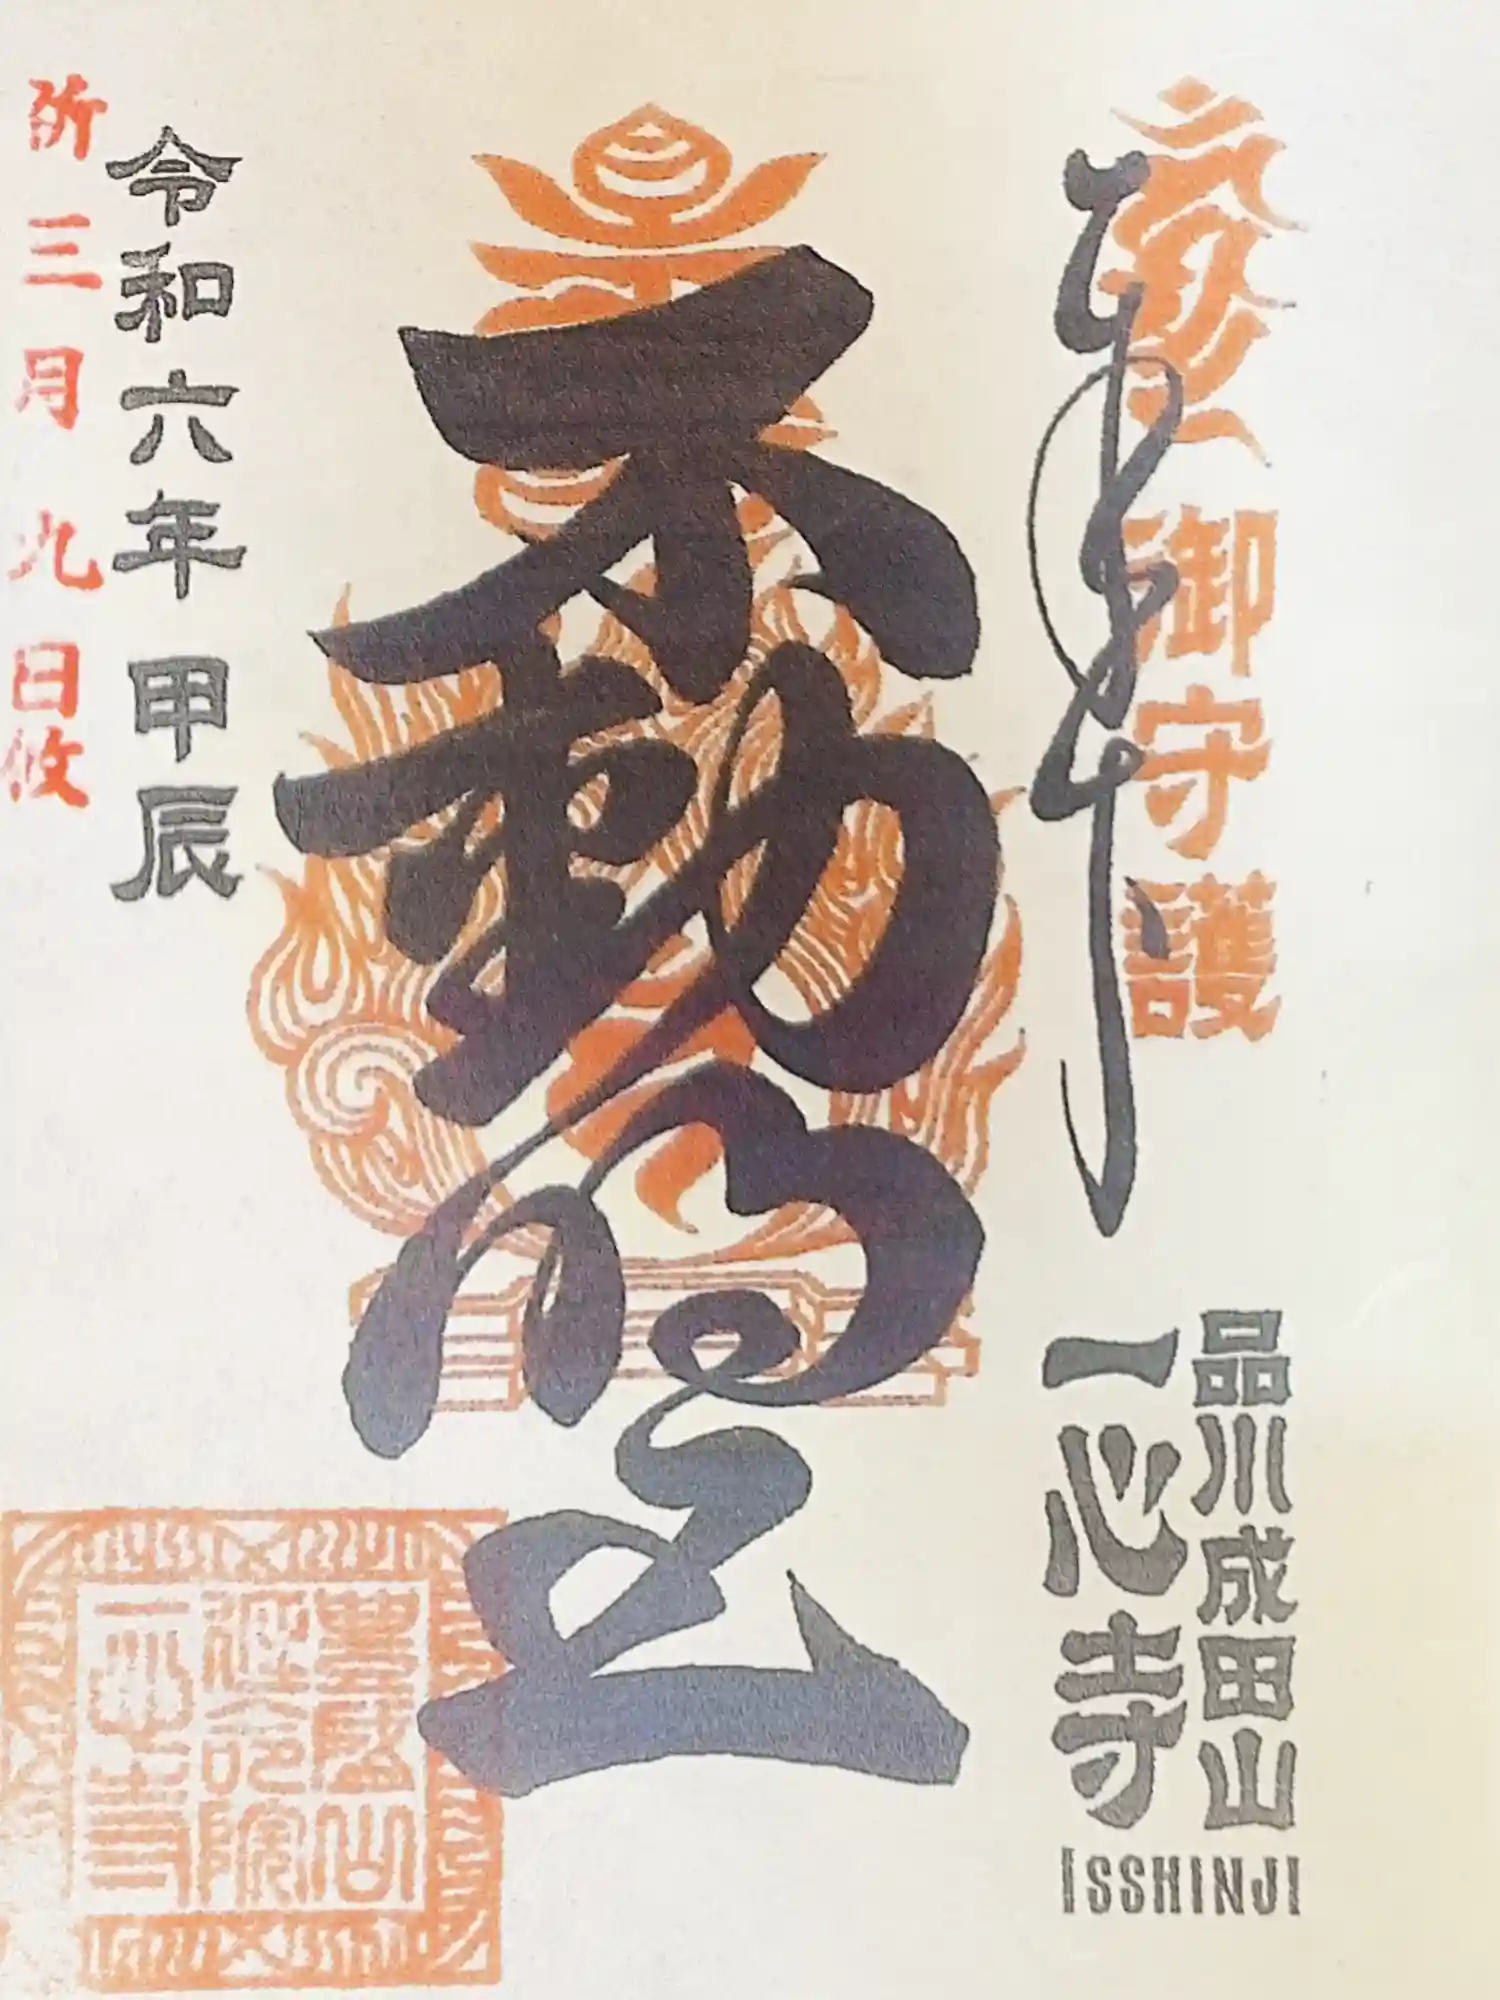 御守護
品川成田山
一心寺
ISSHINJI
不動明王
令和六年甲辰
三月九日
豊盛山
延命院
一心寺